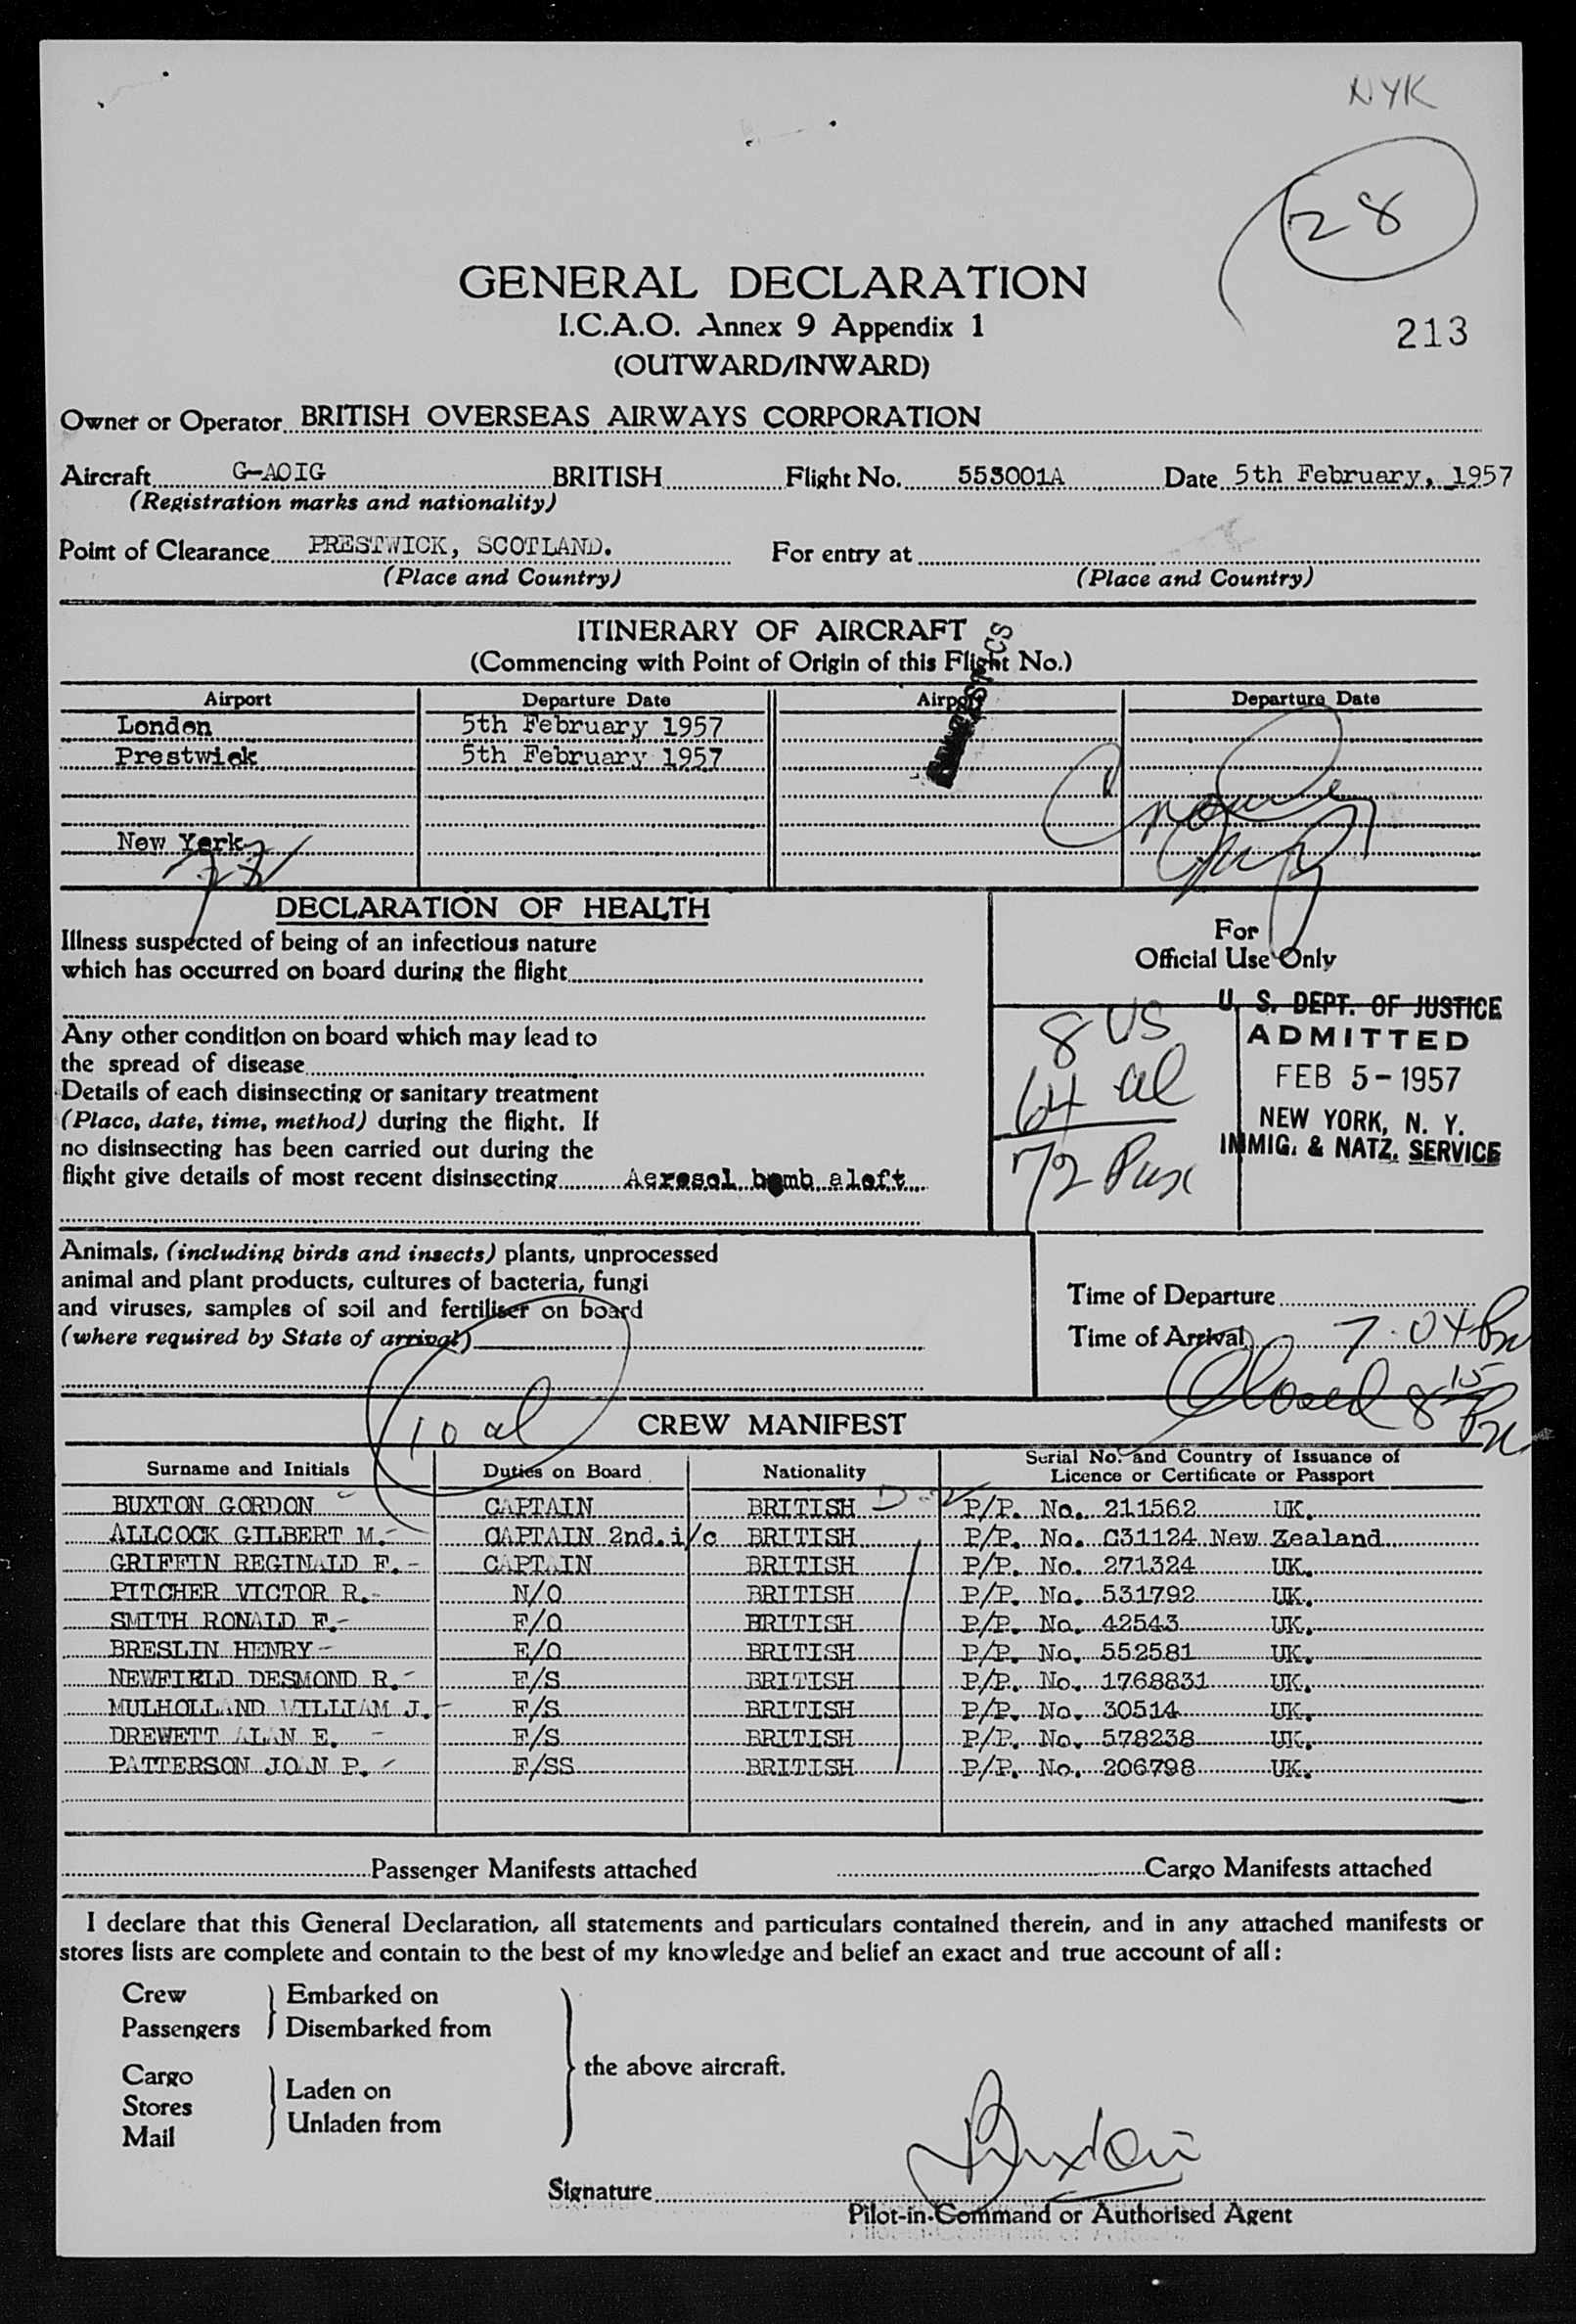 NYK
28
GENERAL DECLARATION
I.C.A.O. Annex 9 Appendix 1
213
(OUTWARD/INWARD)
Owner or Operator BRITISH OVERSEAS AIRWAYS CORPORATION
Aircraft G-AOIG BRITISH Flight No. 553001A Date 5th February, 1957
(Registration marks and nationality)
Point of Clearance PRESTWICK, SCOTLAND. For entry at
(Place and Country) (Place and Country)
ITINERARY OF AIRCRAFT
(Commencing with Point of Origin of this Flight No.)
Airport Departure Date Airport Departure Date
London 5th February 1957
Prestwick 5th February 1957
New York
DECLARATION OF HEALTH
Illness suspected of being of an infectious nature
which has occurred on board during the flight
For
Official Use Only
Any other condition on board which may lead to
the spread of disease
Details of each disinsecting or sanitary treatment
(Place, date, time, method) during the flight. If
no disinsecting has been carried out during the
flight give details of most recent disinsecting Aeresol bomb aloft
8 US
64 al
72 Pax
U. S. DEPT. OF JUSTICE
ADMITTED
FEB 5-1957
NEW YORK, N. Y.
IMMIG. & NATZ. SERVICE
Animals, (including birds and insects) plants, unprocessed
animal and plant products, cultures of bacteria, fungi
and viruses, samples of soil and fertiliser on board
(where required by State of arrival)
Time of Departure
Time of Arrival 7.04 Pm
Closed 8 15 Pm
10 al
CREW MANIFEST
Surname and Initials Duties on Board Nationality Serial No. and Country of Issuance of
Licence or Certificate or Passport
BUXTON GORDON CAPTAIN BRITISH P/P. No. 211562 UK.
ALLCOCK GILBERT M. CAPTAIN 2nd.i/c BRITISH P/P. No. C31124 New Zealand
GRIFFIN REGINALD F. CAPTAIN BRITISH P/P. No. 271324 UK.
PITCHER VICTOR R. N/O BRITISH P/P. No. 531792 UK.
SMITH RONALD F. E/O BRITISH P/P. No. 42543 UK.
BRESLIN HENRY E/O BRITISH P/P. No. 552581 UK.
NEWFIELD DESMOND R. F/S BRITISH P/P. No. 1768831 UK.
MULHOLLAND WILLIAM J. F/S BRITISH P/P. No. 30514 UK.
DREWETT ALAN E. F/S BRITISH P/P. No. 578238 UK.
PATTERSON JOAN P. F/SS BRITISH P/P. No. 206798 UK.
Passenger Manifests attached Cargo Manifests attached
I declare that this General Declaration, all statements and particulars contained therein, and in any attached manifests or
stores lists are complete and contain to the best of my knowledge and belief an exact and true account of all:
Crew
Passengers
Embarked on
Disembarked from
Cargo
Stores
Mail
Laden on
Unladen from
the above aircraft.
Signature Buxton
Pilot-in-Command or Authorised Agent